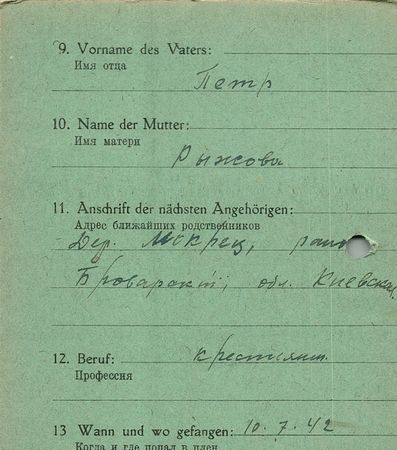 9. Vorname des Vaters:
Имя отца
Петр
10. Name der Mutter:
Имя матери
Рыжова
11. Anschrift der nächsten Angehörigen:
Адрес ближайших родственников
Дер. Мокрец,
Броварский, обл. Киевская,
12. Beruf: крестьянин
Профессия
13 Wann und wo gefangen: 10.7.42
Когда и где попал в плен